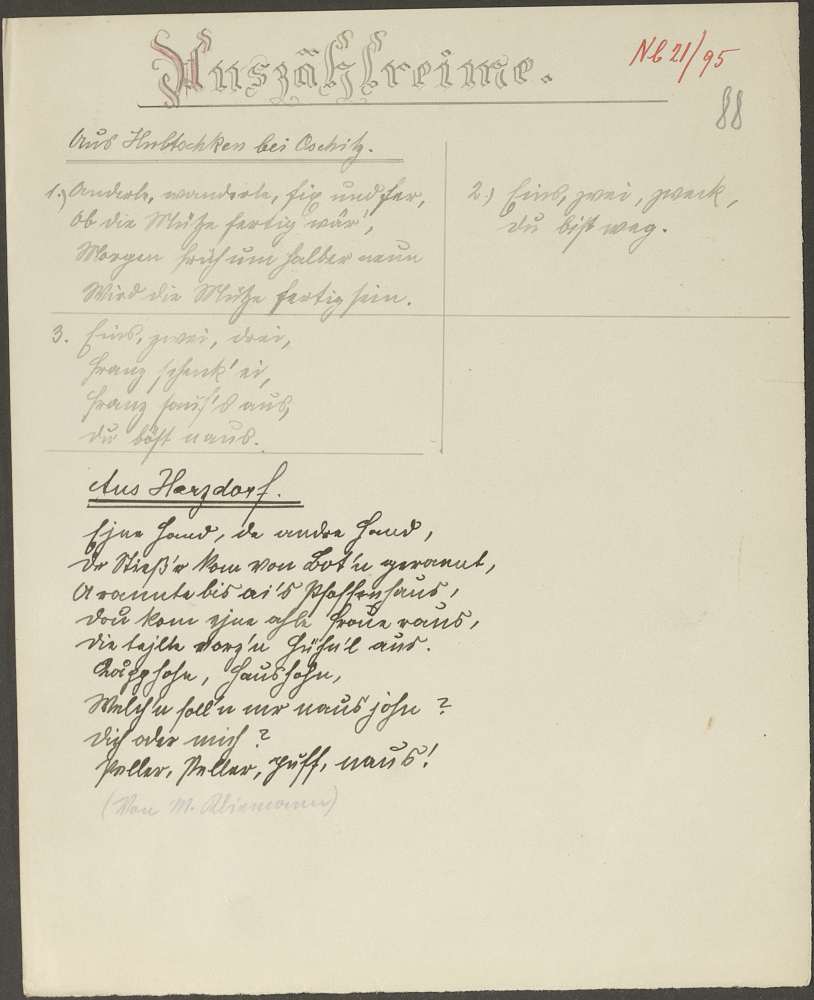 Auszählreime.
Nb 21/95
88
Aus Hubtschken bei Oschitz.
1.) Anderle, wanderle, fix und fer,
ob die Mütze fertig wär',
Morgen früh um halber neun
Wird die Mütze fertig sein.
2.) Eins, zwei, zweck,
Du bist weg.
3. Eins, zwei, drei,
Franz schenk' ei,
Franz sauf's aus,
du böst naus.
Aus Harzdorf.
Ejne Hand, de andre Hand,
Dr Stieß'r kom von Bot'n gerannt,
A rannte bis ai's Pfaffenhaus,
dou kom ejne ahle Froue raus,
die tejlte vorz'n Hühn'l aus.
Haushohn,
Welch'n soll'n mr naus john?
Dich oder mich?
Peller, Peller, Puff, naus!
(Von M. Kliemann)